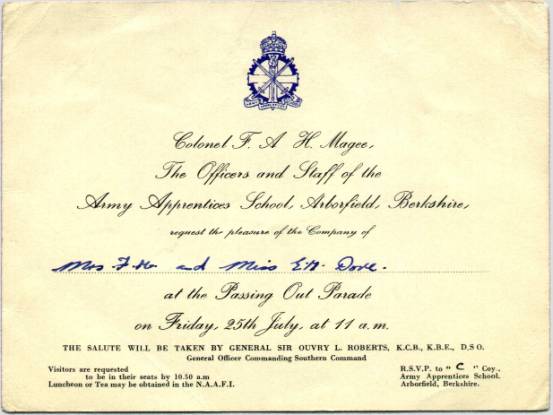 Colonel F. A H. Magee,
The Officers and Staff of the
Army Apprentices School, Arborfield, Berkshire,
request the pleasure of the Company of
Mrs F. and Miss E.N. Dove.
at the Passing Out Parade
on Friday, 25th July, at 11 a.m.
THE SALUTE WILL BE TAKEN BY GENERAL SIR OUVRY L. ROBERTS, K.C.B., K.B.E., D,SO.
General Officer Commanding Southern Command
Visitors are requested
to be in their seats by 10.50 a.m
Luncheon or Tea may be obtained in the N.A.A.F.I.
R.S.V.P. to " C " Coy.,
Army Apprentices School.
Arborfield, Berkshire.